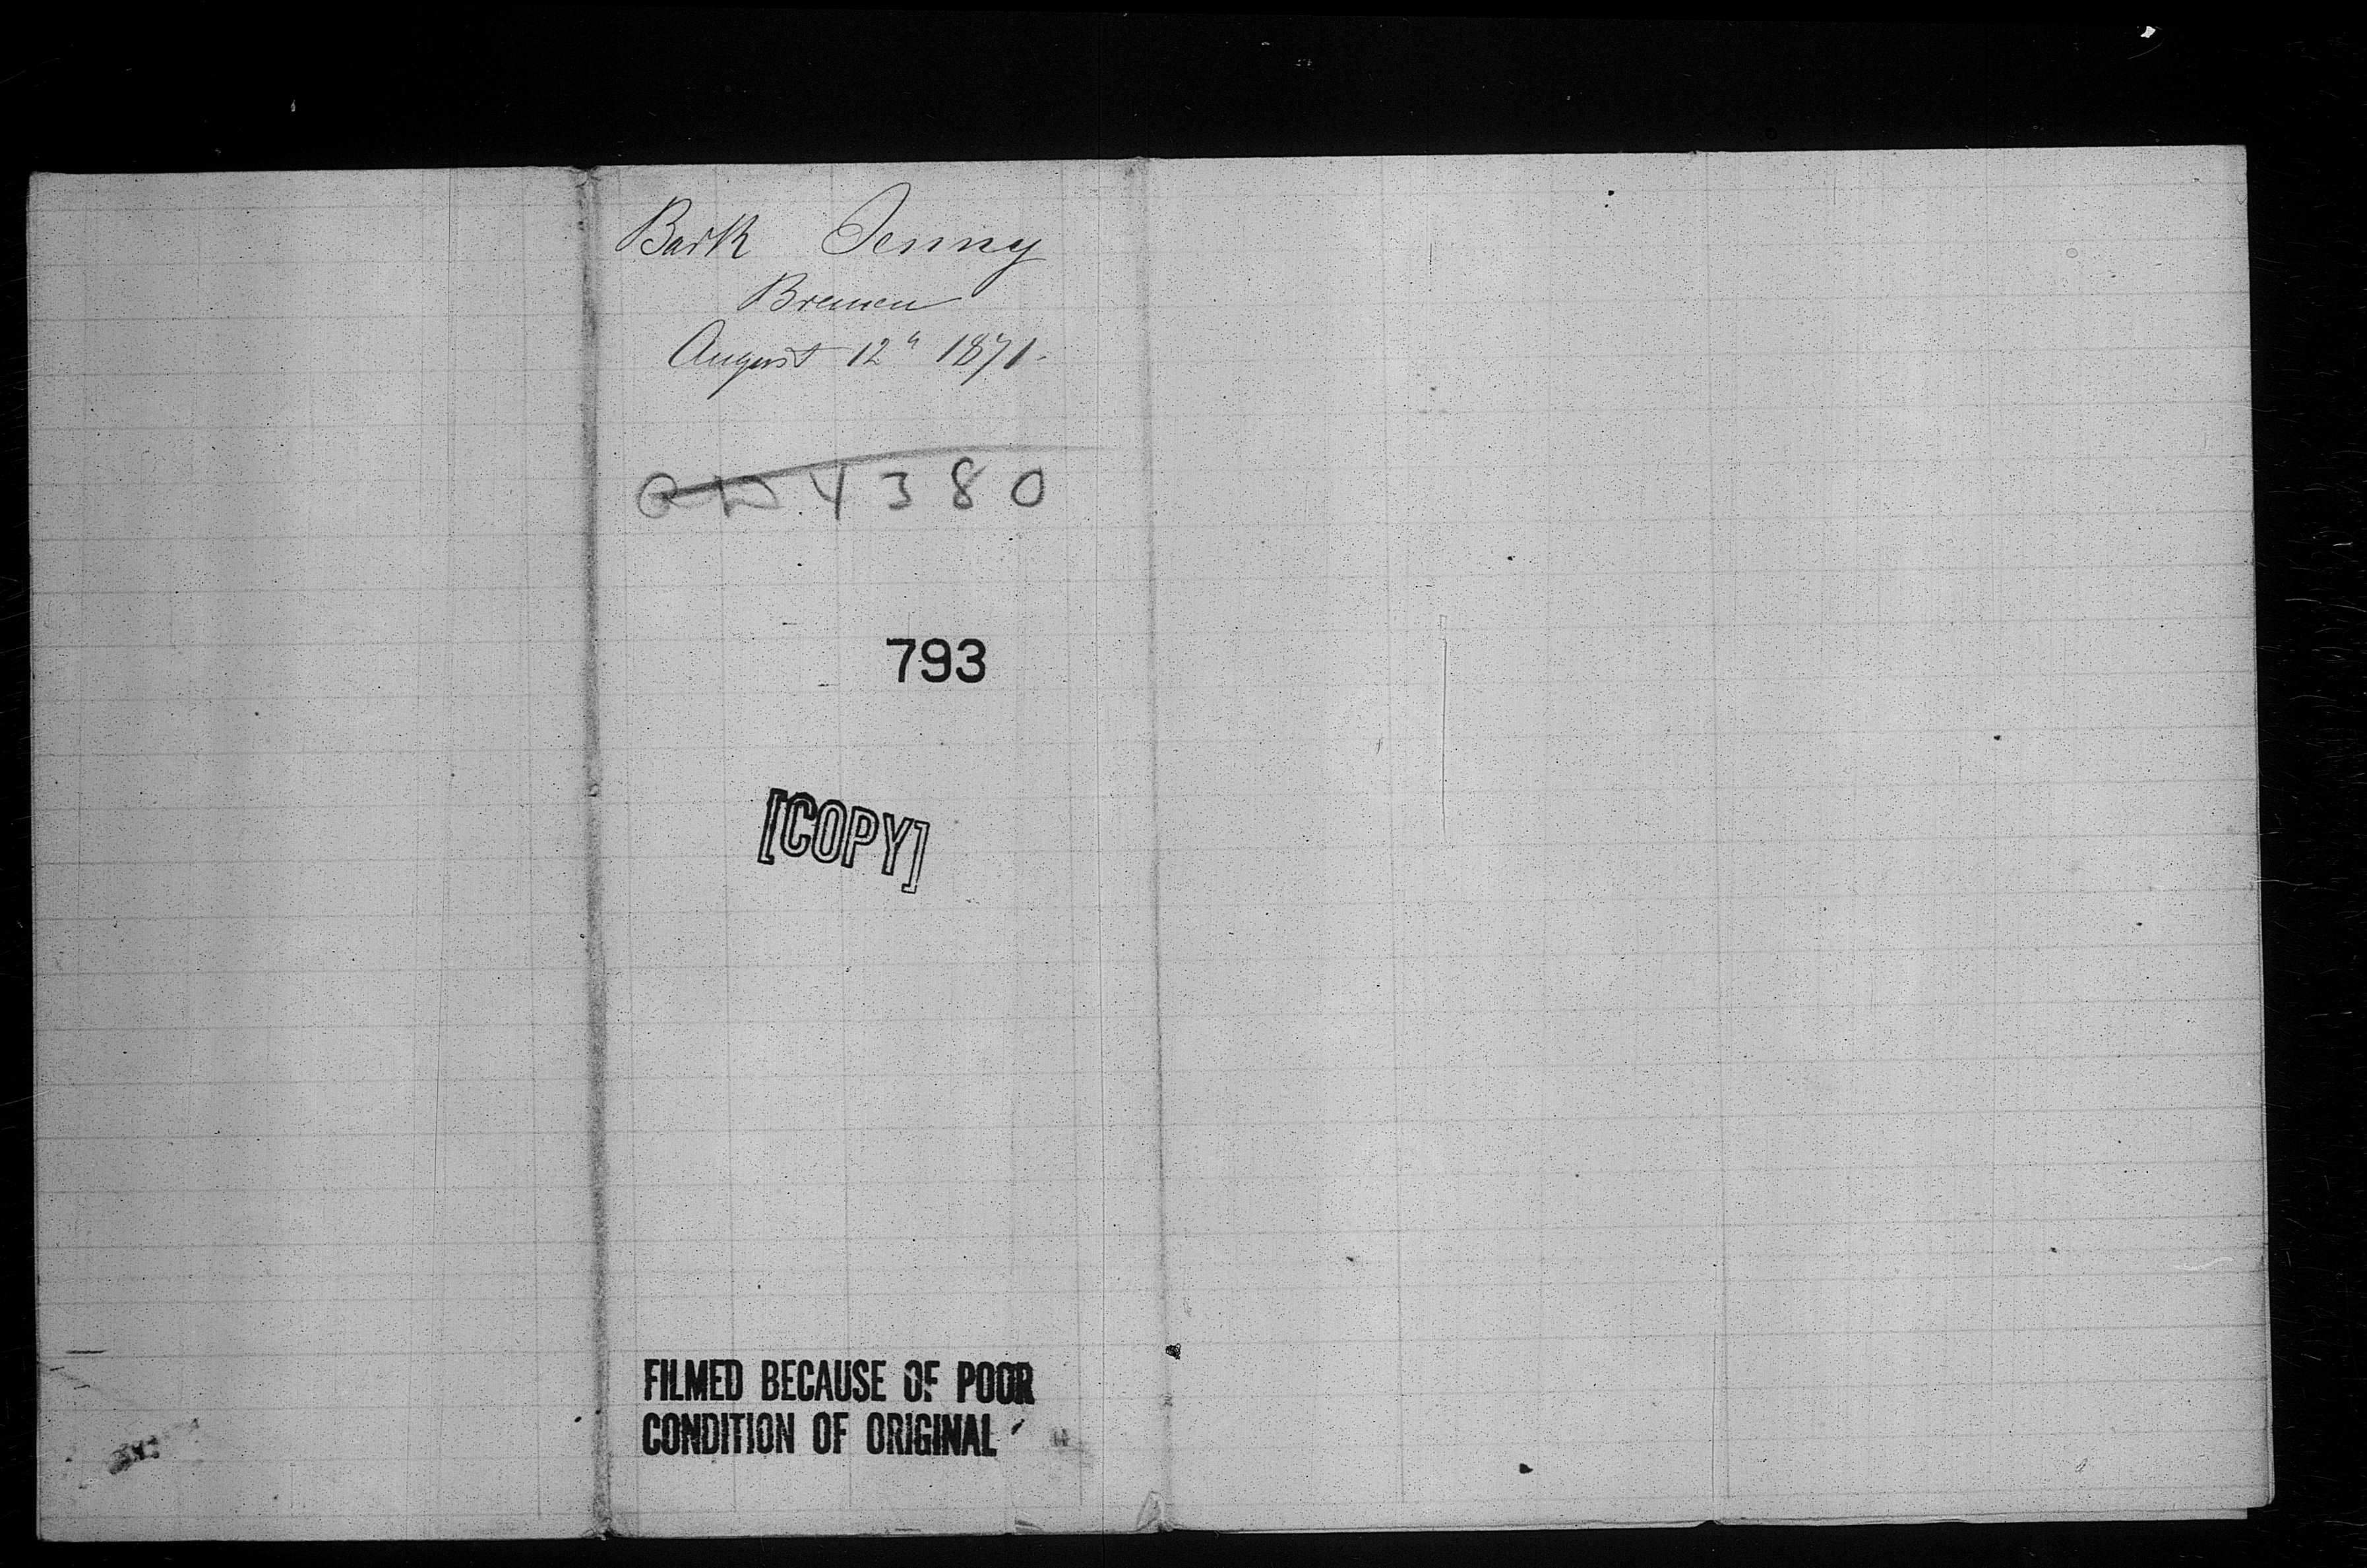 Bark Jenny
Bremen
August 12" 1871.
4380
793
[COPY]
FILMED BECAUSE OF POOR
CONDITION OF ORIGINAL